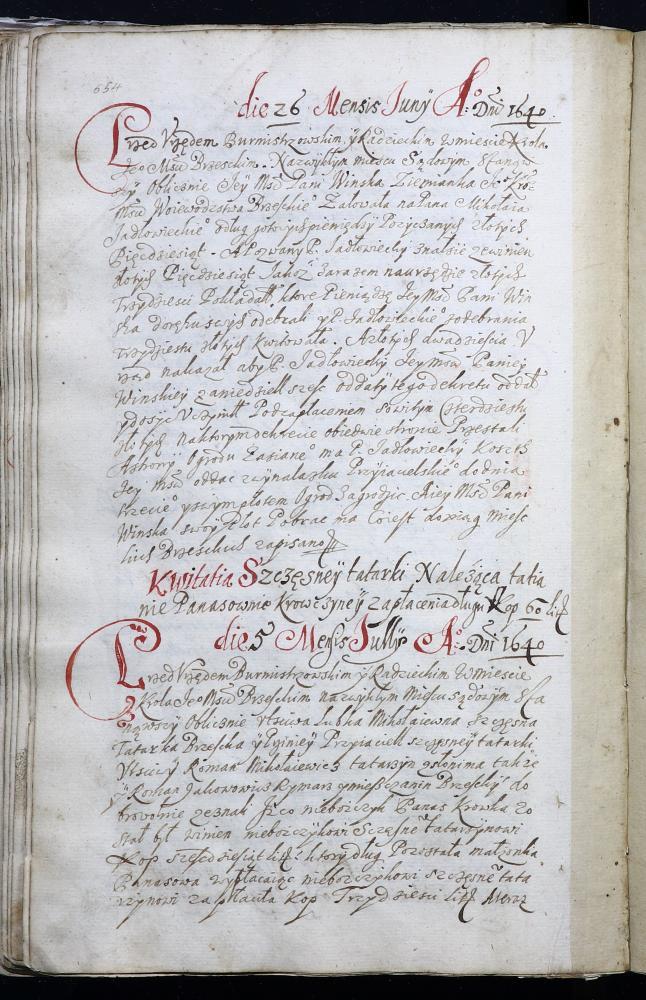 654
die 26 Mensis Juny A⁰: Dni 1640
Przed Vrzędem Burmistrzowskim y Radzieckim w mieście Krola
Je⁰ Msći Brzeskim. Na zwykłym miescu Sądowym Stanąw
szy Oblicznie Jey Msć Pani Winska Ziemianka Je⁰ Kro:
Msći Woiewodztwa Brzeskie⁰ Załowała na Pana Mikołaia
Jadłowieckie⁰ o dług gotowych pieniędzy Pozyczanych złotych
Pięcdziesiąt. A Pozwany P. Jadłowiecky znał sie zewinien
złotych Pięcdziesiąt Jakoz zarazem na urzędzie złotych
Trzydziesci Pokładał, ktore Pieniądze Jey Msć Pani Win
ska do ręku swych odebrała y P. Jadłowieckie⁰ z odebrania
trzydziestu złotych kwitowała. A złotych dwadziescia V
rząd nakazał aby P. Jadłowiecky Jey Msći Paniey
Winskiey za niedziell szesc od daty tego dekretu oddał
y dosyc Vczynił Pod zapłaceniem sowitym Czterdziestu
złotych na ktorym dekrecie obiedwie stronie Przestali
A strony Ogrodu Zasiane⁰ ma P. Jadłowiecky Koszth
Jey Msći oddac z wynalasku Przyiacielskie⁰ do dnia
trzecie⁰ y swym płotem Ogrod Zagrodzic. A Jey Msć Pani
Winska swoy Płot Pobrac ma Co iest do xiąg mieyc
kich Brzeskich zapisano
Kwitatia Szczęsney tatarki Naleząca tatia
nie Panasownie Krowczyney z apłacenia długu Kop 60 litt
die 5 Mensis July A⁰: Dni 1640
Przed Vrzędem Burmistrzowskim y Radzieckim w mieście
Krola Je⁰ Msći Brzeskim na zwykłym Miescu sądowym Sta
nąwszy Oblicznie Lubka Mikołaiewna Szczęsna
Tatarka Brzeska y Przyiaciell szczęsney tatarki
Roman Mikołaiewicz tatarzyn z słonima takze
y Roman Jakonowicz Rymarz y mieszczanin Brzesky do
browolnie zeznali Jz co nieboszczyk Panas Krowka zo
stał był winien nieboszczykowi Szczęsne⁰ tatarzynowi
Kop szescdziesiąt litt: ktory dług Pozostała małzonka
Panasowa wypłacaiąc nieboszczykowi szczęsne⁰ tata
rzynowi zapłaciła Kop Trzydziesci litt